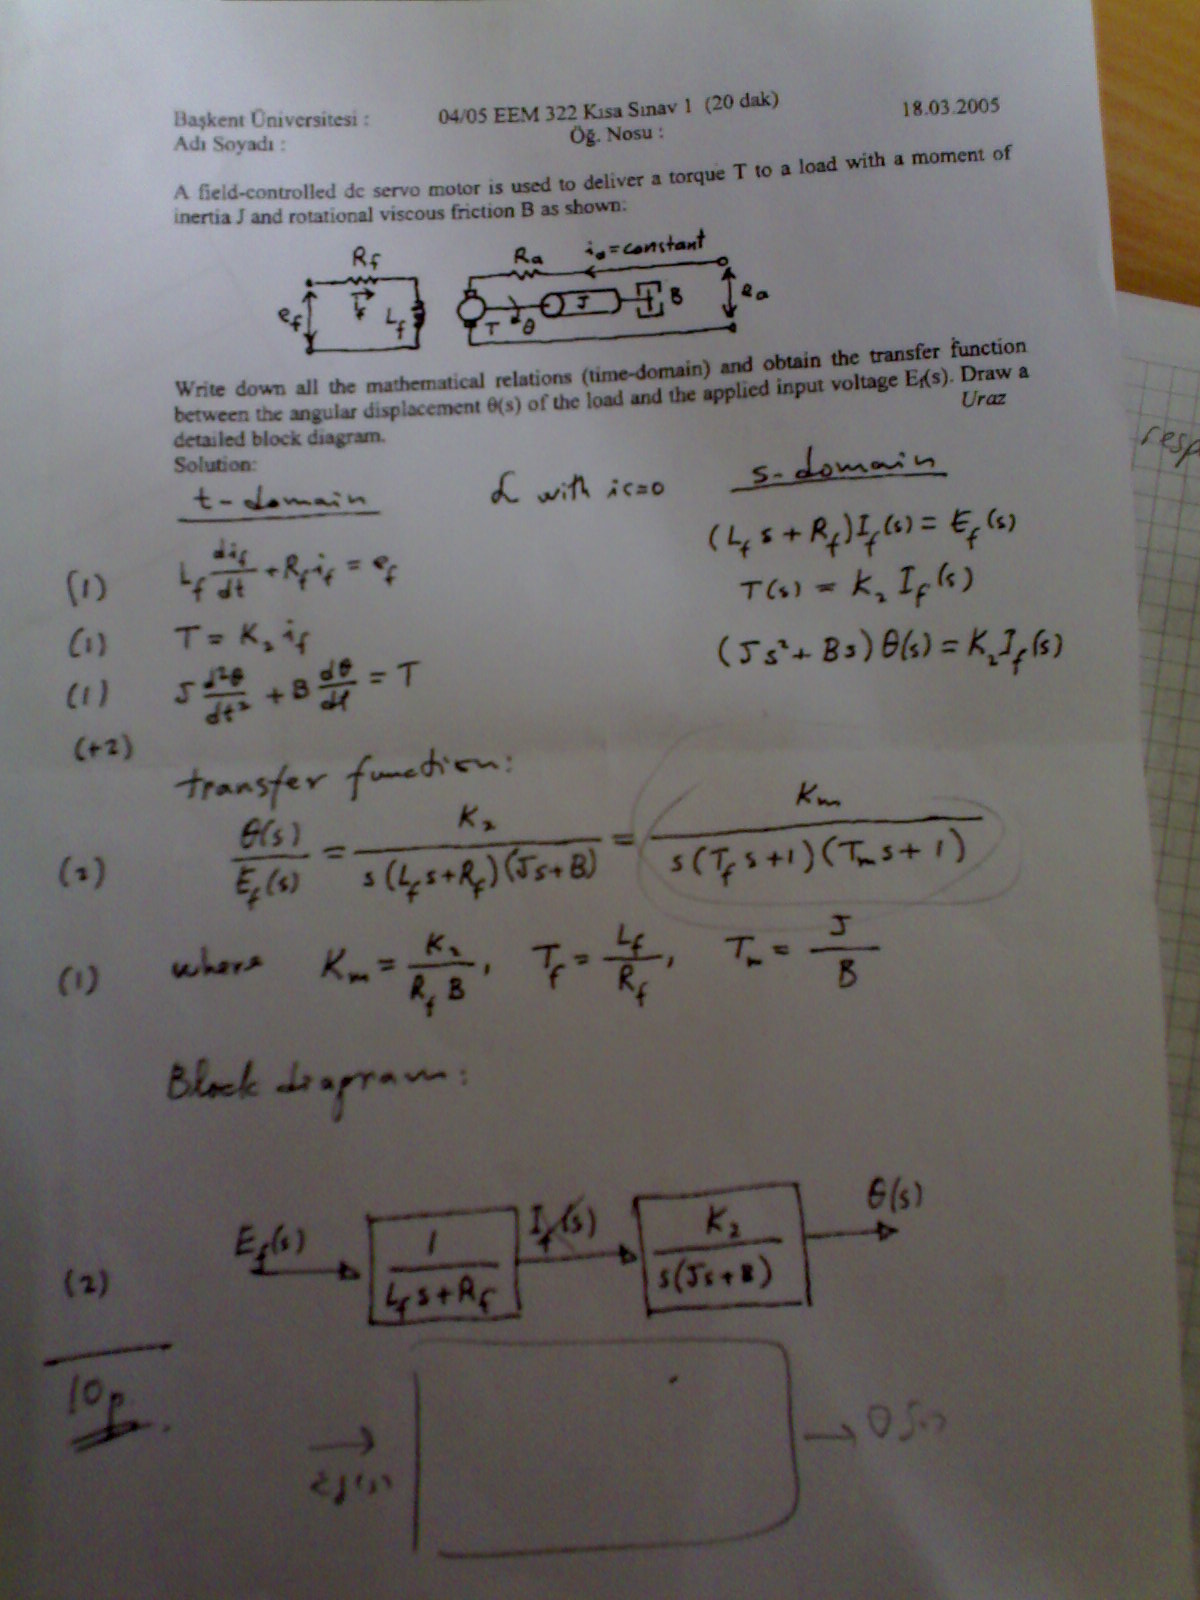 Başkent Üniversitesi : 04/05 EEM 322 Kısa Sınav 1 (20 dak) 18.03.2005
Adı Soyadı : Öğ. Nosu :
A field-controlled dc servo motor is used to deliver a torque T to a load with a moment of
inertia J and rotational viscous friction B as shown:
R_f R_a i_a = constant
e_f i_f L_f T θ J B e_a
Write down all the mathematical relations (time-domain) and obtain the transfer function
between the angular displacement θ(s) of the load and the applied input voltage E_f(s). Draw a
detailed block diagram. Uraz
Solution:
t-domain ℒ with ic=0 s-domain
(1) L_f di_f/dt + R_f i_f = e_f (L_f s + R_f) I_f(s) = E_f(s)
(1) T = K_2 i_f T(s) = K_2 I_f(s)
(1) J d²θ/dt² + B dθ/dt = T (Js² + Bs) θ(s) = K_2 I_f(s)
(+2)
transfer function:
(2) θ(s)/E_f(s) = K_2 / s(L_f s + R_f)(Js + B) = K_m / s(T_f s + 1)(T_m s + 1)
(1) where K_m = K_2 / R_f B, T_f = L_f / R_f, T_m = J / B
Block diagram:
(2) E_f(s) 1 / L_f s + R_f I_f(s) K_2 / s(Js + B) θ(s)
10p.